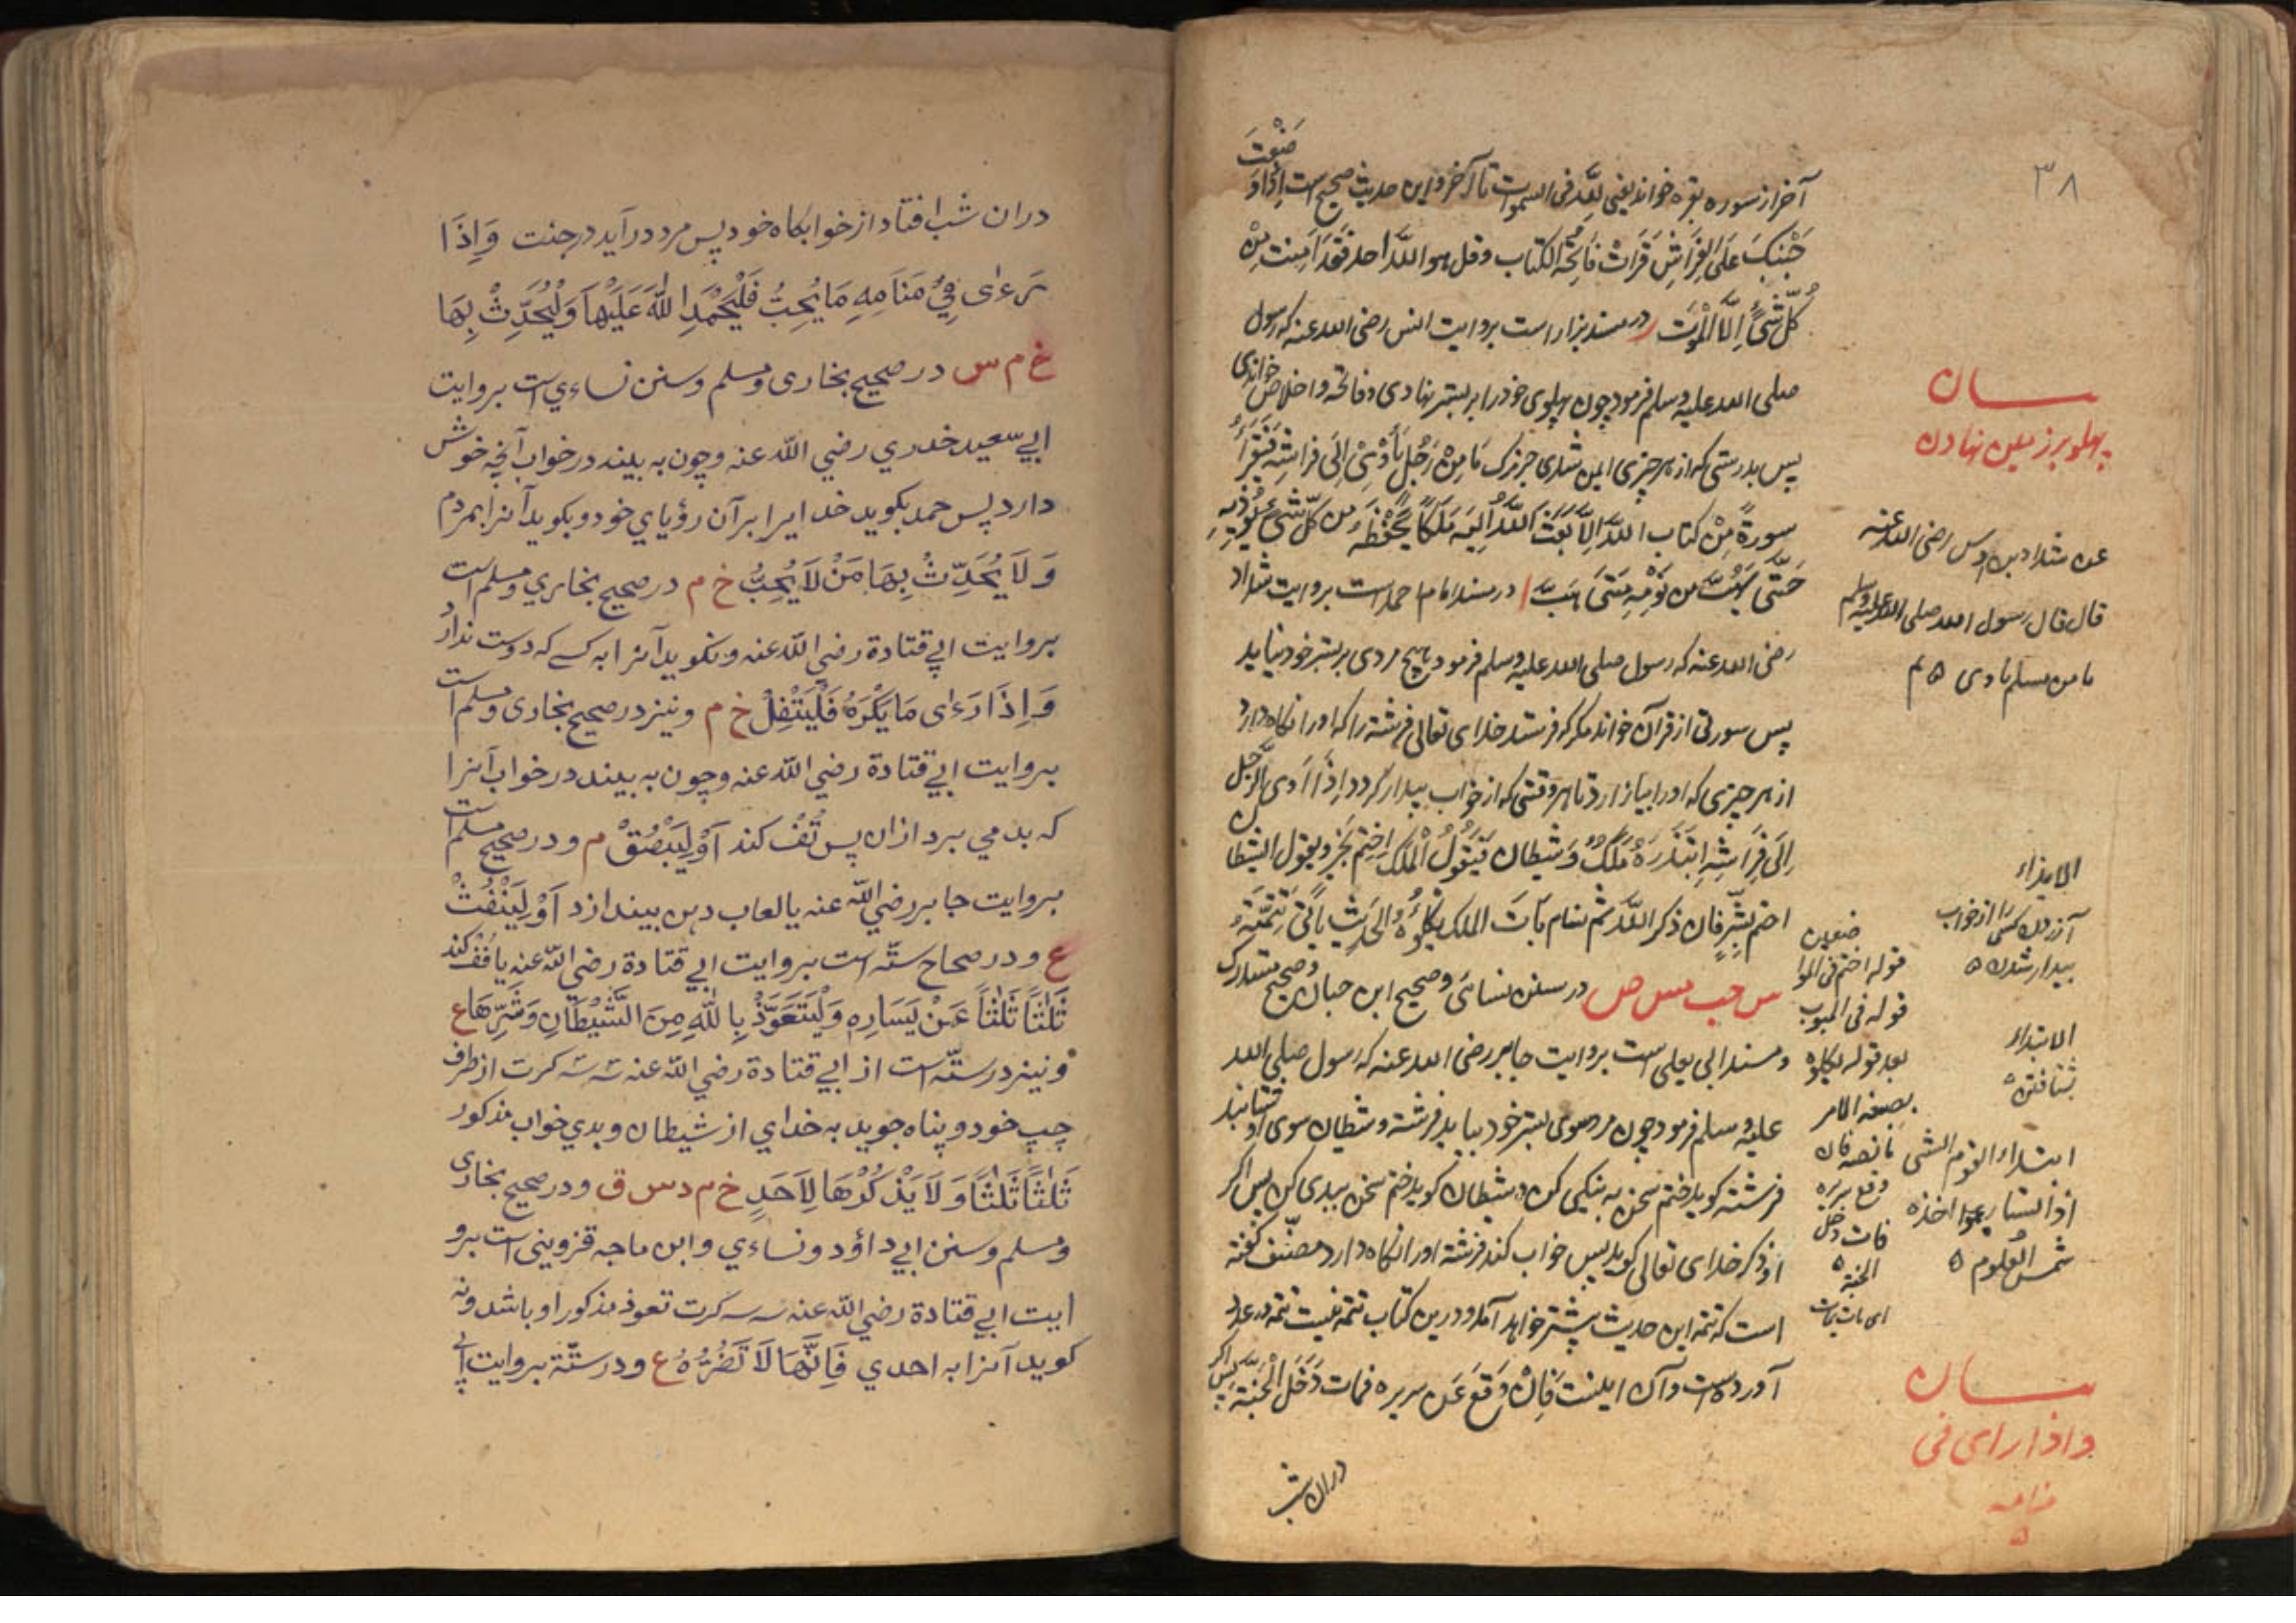 ۳۸
آخر از سوره بقره خواند یعنی لله فی السموات تا آخر و این حدیث صحیح است اِذَا وَضَعْتَ
جَنْبَكَ عَلَى الفِرَاشِ قَرَأتَ فَاتِحَةَ الکتاب و قل هو اللّٰه احد فَقَدْ اَمِنْتَ مِنْ
كُلِّ شَیْءٍ اِلَّا الْمَوْتَ ر در مسند بزار است بروایت انس رضی الله عنه که رسول
صلی الله علیه وسلم فرمود چون پهلوی خود را بر بستر نهادی و فاتحه و اخلاص خواندی
پس بدرستی که از هر چیزی ایمن شدی جز مرگ مَا مِنْ رَجُلٍ یَأْوِیْ اِلَى فراشِه فَیَقْرَأُ
سورةً مِنْ کتاب اللّٰه اِلَّا بَعَثَ اللّٰهُ اِلَیْهِ مَلَكًا یَحْفَظُهُ من کلّ شَیْءٍ یُؤْذِیْهِ
حَتّٰى یَهُبَّ من نَوْمِهِ مَتٰى هَبَّ ا در مسند امام احمد است بروایت شداد
رضی الله عنه که رسول صلی الله علیه وسلم فرمود هیچ مردی بر بستر خود نیاید
پس سورتی از قرآن خواند مکر که فرستد خدای تعالی فرشته را که او را نکاه دارد
از هر چیزی که او را بیازارد تا هر وقتی که از خواب بیدار کردد اِذَا اَوَى الرَّجُلُ
اِلَى فِرَاشِهِ ابْتَدَرَهُ مَلَكٌ وَ شَیْطان فَیَقُوْلُ الْمَلَكُ اخْتِمْ بِخَیْرٍ و یقول الشیطان
اختم بِشَرٍّ فان ذکر اللّٰه ثم نام بَاتَ الملك یَكْلَؤُهُ الحَدِیْث یَأتی تَتِمَّتُهُ
س حب مس ص در سنن نسائی و صحیح ابن حبان و صحیح مستدرك
و مسند ابی یعلی است بروایت جابر رضی الله عنه که رسول صلی الله
علیه وسلم فرمود چون مرد سوی بستر خود بیاید فرشته و شیطان سوی او شتابند
فرشته کوید ختم سخن به نیکی کن و شیطان کوید ختم سخن ببدی کن پس اکر
او ذکر خدای تعالی کوید پس خواب کند فرشته او را نکاه دارد مصنّف کفته
است که تتمه این حدیث پیشتر خواهد آمد و درین کتاب تتمه نیست تتمه در عدد
آورده است و آن اینست فَاِنْ وَقَعَ عَن سریره فمات دَخَلَ الْجَنَّةَ پس اکر
دران شب
بیان
پهلو بر زمین نهادن
عن شداد بن اوس رضی الله عنه
قال قال رسول الله صلی الله علیه وسلم
ما من مسلم یاوی
الایذاء
آزردن کسی را از خواب
بیدار شدن ه
الابتدار
شتافتن ه
ابتدار القوم الشی
اذا تسارعوا اخذه
شمس العلوم ه
قوله اختم فی الموا
ضعین
قوله فی المبوب
بعد قوله یکلوه
بصیغة الامر
ما نصه فان
وقع سریره
فمات دخل
الجنة ه
ای بات یبات
بیان
و اذا رای فی
منامه
ه
دران شب افتاد از خوابکاه خود پس مرد درآید درجنت وَاِذَا
رَءٰى فِیْ مَنَامِهِ مَا یُحِبُّ فَلْیَحْمَدِ اللّٰهَ عَلَیْهَا وَلْیُحَدِّثْ بِهَا
خ م س در صحیح بخاری و مسلم و سنن نساءي است بروایت
ابي سعید خدري رضي اللّٰه عنه و چون به بیند در خواب آنچه خوش
دارد پس حمد بکوید خدایرا بر آن رؤیاي خود و بکوید آنرا بمردم
وَ لَا یُحَدِّثْ بِهَا مَنْ لَا یُحِبُّ خ م در صحیح بخاري و مسلم است
بروایت ابي قتادة رضي اللّٰه عنه و نکوید آنرا به کسے که دوست ندارد
وَاِذَا رَءٰى مَا یَكْرَهُ فَلْیَتْفِلْ خ م و نیز در صحیح بخاری و مسلم است
بروایت ابي قتادة رضي اللّٰه عنه و چون به بیند در خواب آنرا
که بد مي برد ازان پس تُفْ کند اَوْ لِیَبْصُقْ م و در صحیح مسلم است
بروایت جابر رضي اللّٰه عنه یا لعاب دهن بیندازد اَوْ لِیَنْفُثْ
ع و در صحاح ستّه است بروایت ابي قتادة رضي اللّٰه عنه یا فُفْ کند
ثَلٰثًا ثَلٰثًا عَنْ یَسَارِهِ وَلْیَتَعَوَّذْ بِاللّٰهِ مِنَ الشَّیْطَانِ وَشَرِّهَا ع
و نیز در ستّه است از ابي قتادة رضي اللّٰه عنه سه سه کرت از طرف
چپ خود و پناه جوید به خداي از شیطان و بدي خواب مذکور
ثَلٰثًا ثَلٰثًا وَ لَا یَذْكُرْهَا لِاَحَدٍ خ م د س ق و در صحیح بخاری
و مسلم و سنن ابي داؤد و نساءي و ابن ماجه قزویني است برو
ایت ابي قتادة رضي اللّٰه عنه سه سه کرت تعوذ مذکور او باشد و نه
کوید آنرا به احدي فَاِنَّهَا لَا تَضُرُّهُ ع و در ستّة بروایت ابي